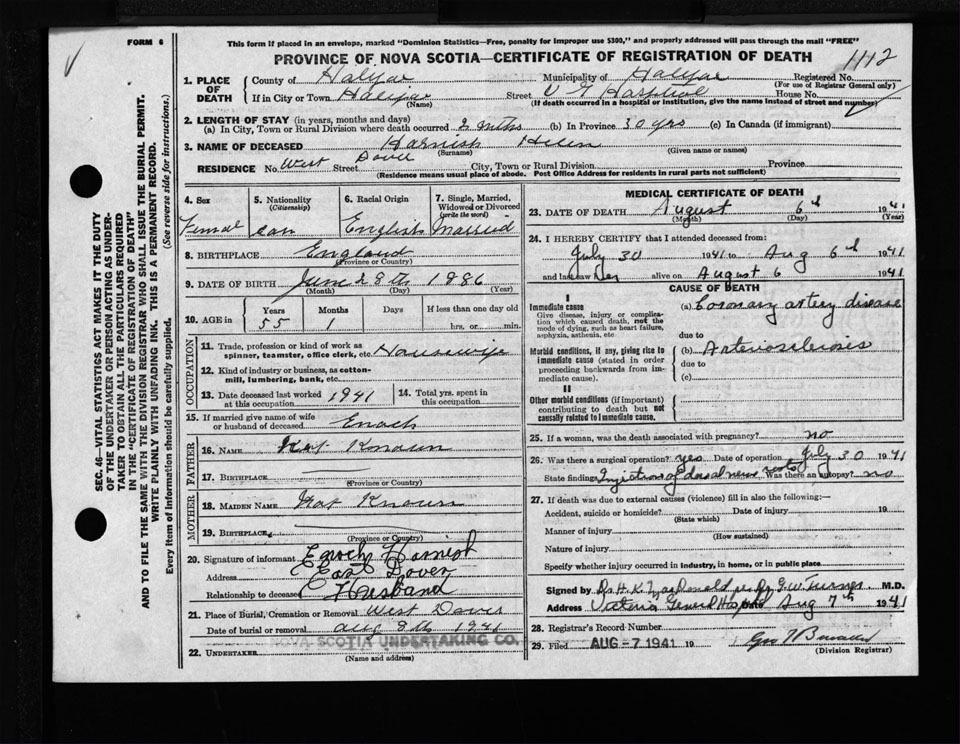 FORM 6
This form if placed in an envelope, marked "Dominion Statistics—Free, penalty for improper use $300," and properly addressed will pass through the mail "FREE"
PROVINCE OF NOVA SCOTIA—CERTIFICATE OF REGISTRATION OF DEATH
1112
1. PLACE OF DEATH
County of Halifax Municipality of Halifax Registered No.
(For use of Registrar General only)
If in City or Town Halifax Street V G Hospital House No.
(Name) (If death occurred in a hospital or institution, give the name instead of street and number)
2. LENGTH OF STAY (in years, months and days)
(a) In City, Town or Rural Division where death occurred 2 mths (b) In Province 30 yrs (c) In Canada (if immigrant)
3. NAME OF DECEASED Harnish Helen
(Surname) (Given name or names)
RESIDENCE No. West Dover Street City, Town or Rural Division Province
(Residence means usual place of abode. Post Office Address for residents in rural parts not sufficient)
4. Sex
Female
5. Nationality (Citizenship)
Can
6. Racial Origin
English
7. Single, Married, Widowed or Divorced (write the word)
Married
8. BIRTHPLACE England
(Province or Country)
9. DATE OF BIRTH June 28th 1886
(Month) (Day) (Year)
10. AGE in
Years Months Days If less than one day old
55 1 hrs. or min.
OCCUPATION
11. Trade, profession or kind of work as spinner, teamster, office clerk, etc. Housewife
12. Kind of industry or business, as cotton-mill, lumbering, bank, etc.
13. Date deceased last worked at this occupation 1941
14. Total yrs. spent in this occupation
15. If married give name of wife or husband of deceased Enoch
FATHER
16. NAME Not Known
17. BIRTHPLACE
(Province or Country)
MOTHER
18. MAIDEN NAME Not Known
19. BIRTHPLACE
(Province or Country)
20. Signature of informant Enoch Harnish
Address East Dover
Relationship to deceased Husband
21. Place of Burial, Cremation or Removal West Dover
Date of burial or removal Aug 8th 1941
NOVA SCOTIA UNDERTAKING CO.
22. UNDERTAKER
(Name and address)
MEDICAL CERTIFICATE OF DEATH
23. DATE OF DEATH August 6th 1941
(Month) (Day) (Year)
24. I HEREBY CERTIFY that I attended deceased from:
July 30 1941 to Aug 6th 1941
and last saw her alive on August 6 1941
CAUSE OF DEATH
I
Immediate cause
Give disease, injury or complication which caused death, not the mode of dying, such as heart failure, asphyxia, asthenia, etc
(a) Coronary artery disease
due to
Morbid conditions, if any, giving rise to immediate cause (stated in order proceeding backwards from immediate cause).
(b) Arteriosclerosis
due to
(c)
II
Other morbid conditions (if important) contributing to death but not causally related to immediate cause.
25. If a woman, was the death associated with pregnancy? no
26. Was there a surgical operation? yes Date of operation July 30 1941
State findings Injection of dorsal nerve roots Was there an autopsy? no
27. If death was due to external causes (violence) fill in also the following:—
Accident, suicide or homicide? Date of injury 19
(State which)
Manner of injury
(How sustained)
Nature of injury
Specify whether injury occurred in industry, in home, or in public place
Signed by Dr H. K. MacDonald per Dr G. W. Turner M.D.
Address Victoria General Hosp Date Aug 7th 1941
28. Registrar's Record Number
29. Filed AUG -7 1941 19 Geo
(Division Registrar)
SEC. 46—VITAL STATISTICS ACT MAKES IT THE DUTY
OF THE UNDERTAKER OR PERSON ACTING AS UNDER-
TAKER TO OBTAIN ALL THE PARTICULARS REQUIRED
IN THE "CERTIFICATE OF REGISTRATION OF DEATH"
AND TO FILE THE SAME WITH THE DIVISION REGISTRAR WHO SHALL ISSUE THE BURIAL PERMIT.
WRITE PLAINLY WITH UNFADING INK. THIS IS A PERMANENT RECORD.
Every item of information should be carefully supplied. (See reverse side for instructions.)